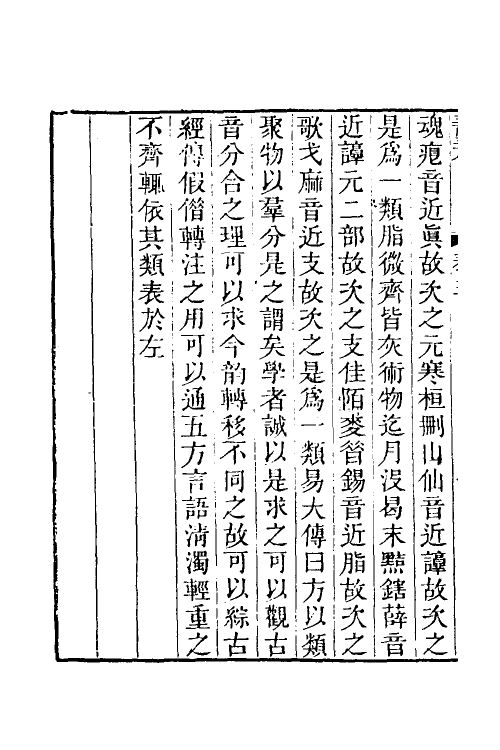 魂痕音近眞故次之元寒桓刪山仙音近諄故次之
是爲一類脂微齊皆灰術物迄月沒曷末黠鎋薛音
近諄元二部故次之支佳陌麥昔錫音近脂故次之
歌戈麻音近支故次之是爲一類易大傳曰方以類
聚物以羣分是之謂矣學者誠以是求之可以觀古
音分合之理可以求今韵轉移不同之故可以綜古
經傳假借轉注之用可以通五方言語淸濁輕重之
不齊輒依其類表於左